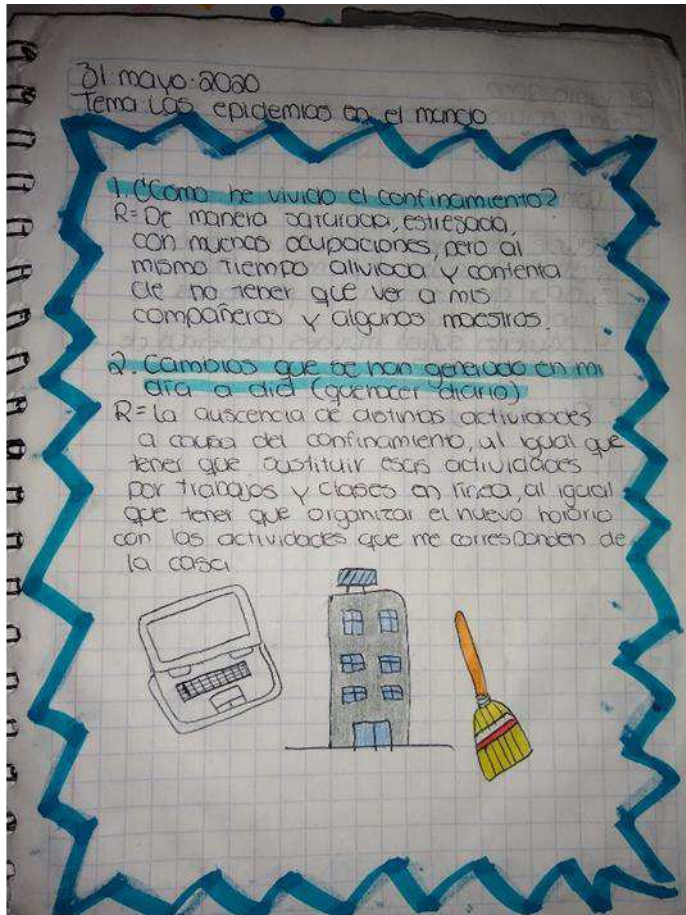 31 mayo·2020
Tema: Las epidemias en el mundo
1. ¿Como he vivido el confinamiento?
R= De manera saturada, estresada,
con muchas ocupaciones, pero al
mismo tiempo aliviada y contenta
de no tener que ver a mis
compañeros y algunos maestros.
2. Cambios que se han generado en mi
día a día (quehacer diario)
R= La auscencia de distintas actividades
a causa del confinamiento, al igual que
tener que sustituir esas actividades
por trabajos y clases en linea, al igual
que tener que organizar el nuevo horario
con las actividades que me corresponden de
la casa